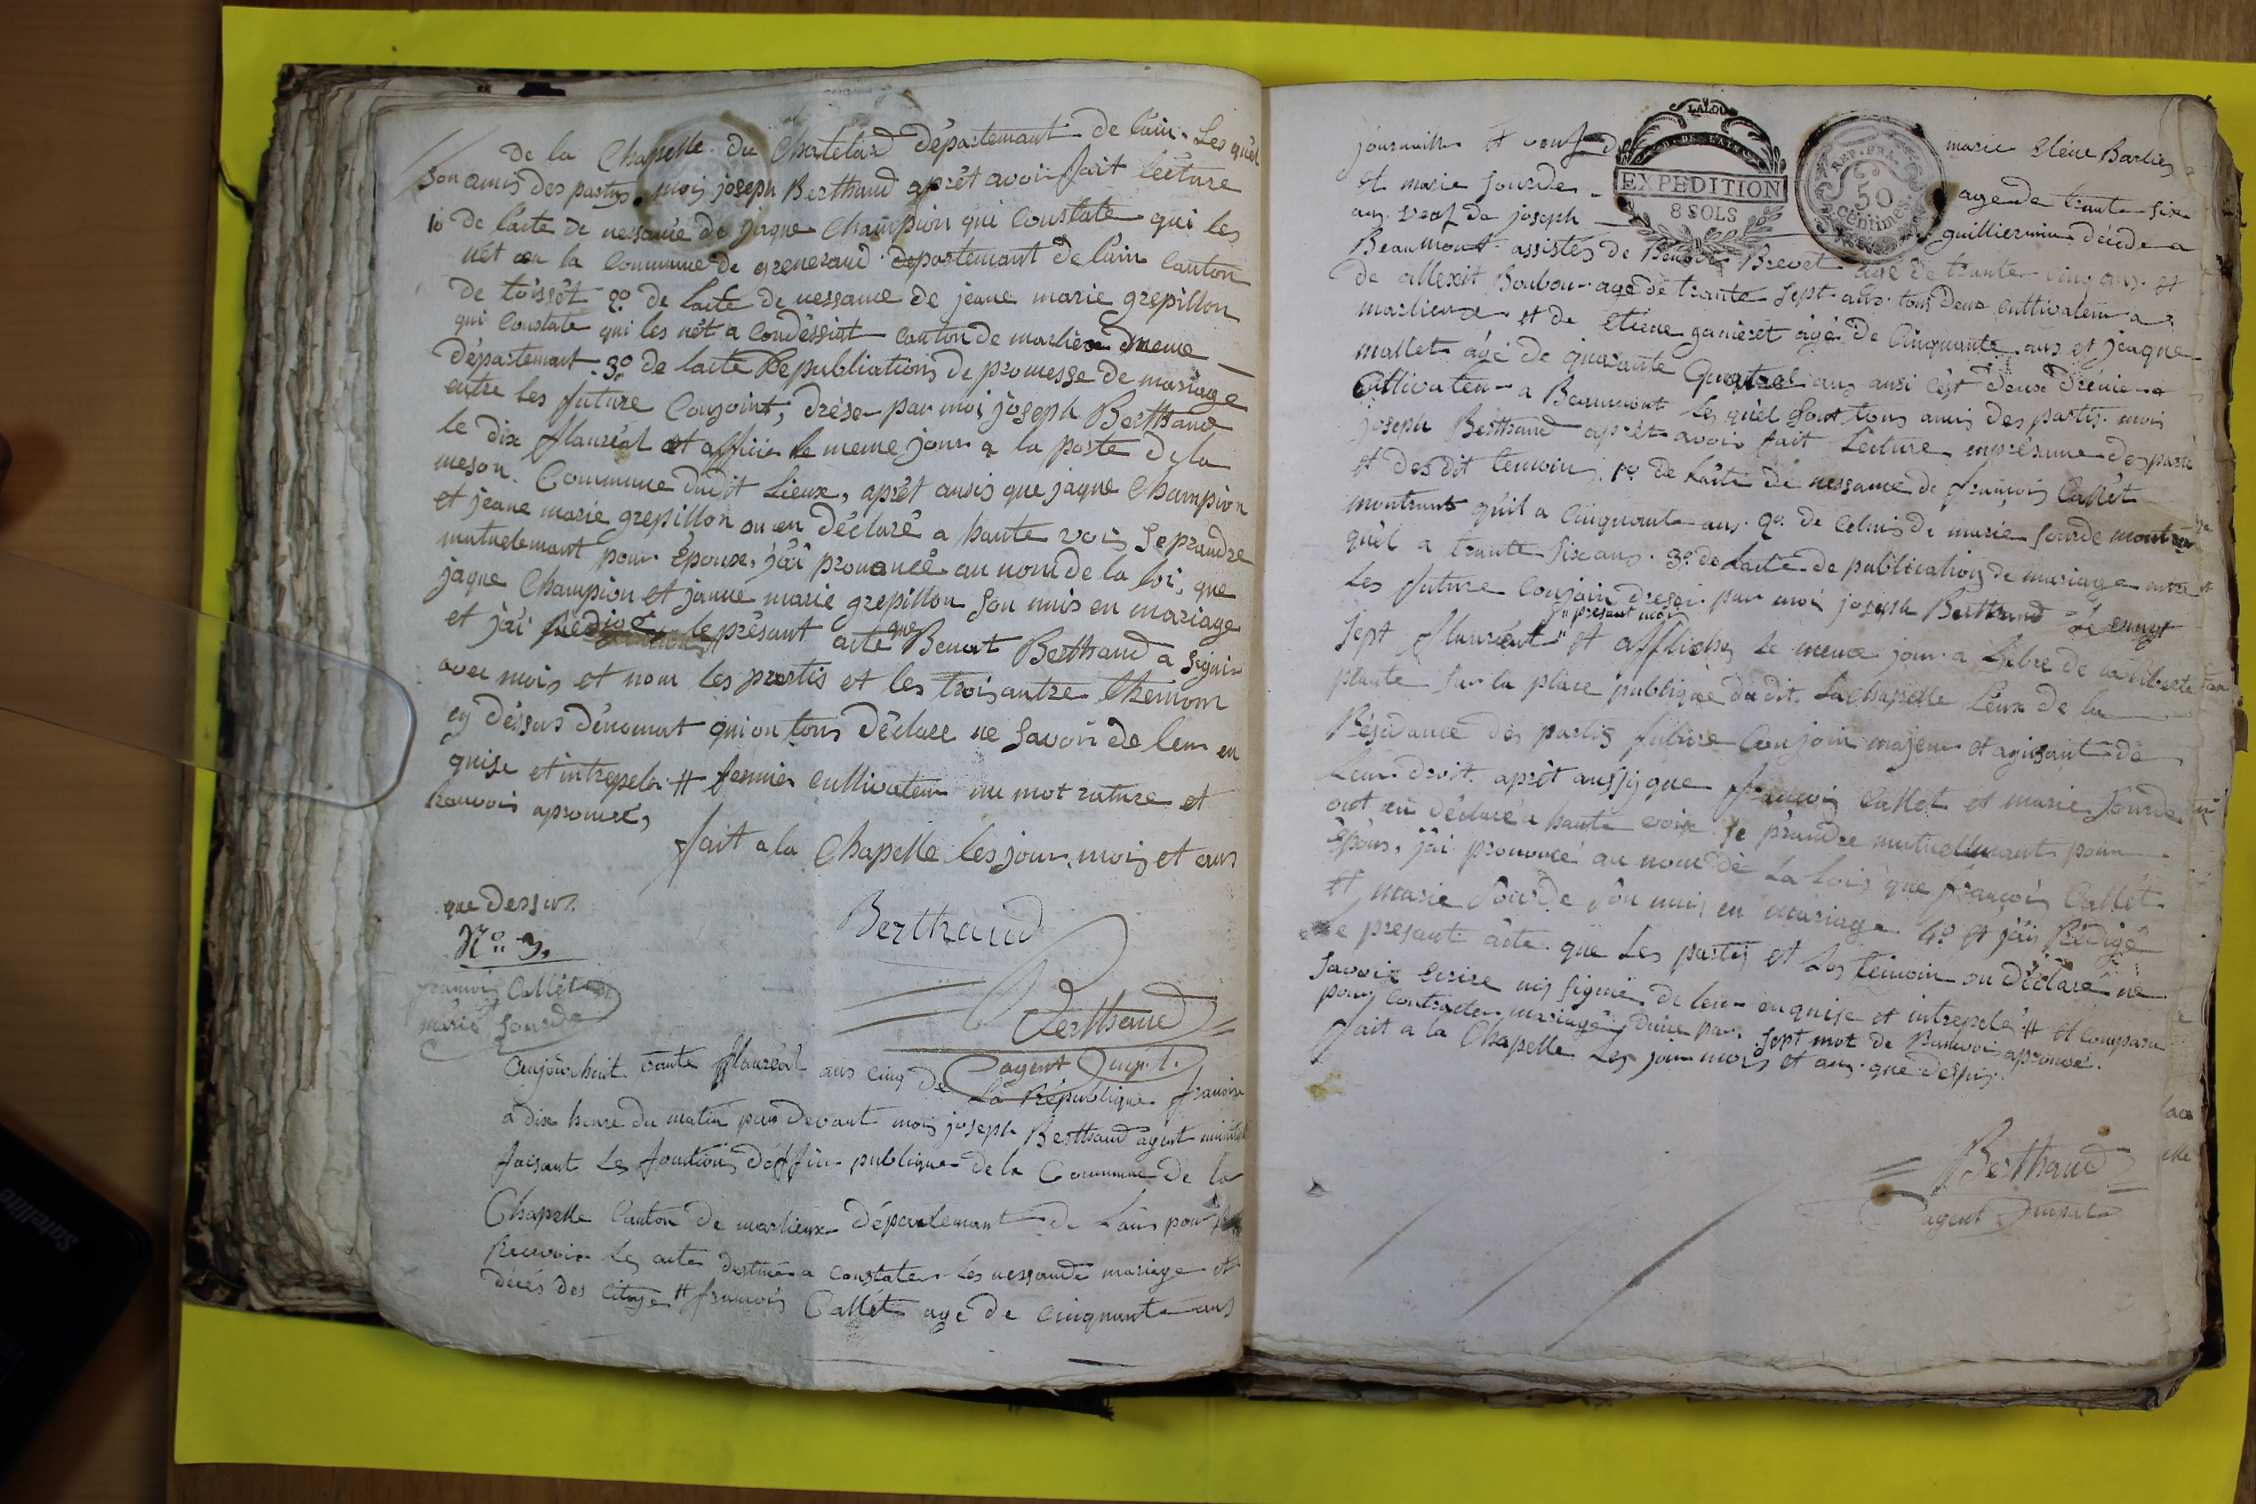 de la Chapelle du Chatelard départemant de lain. Les quel
son amis des partis, mois joseph Berthaud aprêt avoir fait lecture
1º de lacte de nessance de jaque Champion qui constate qui les
nét en la commune de generand departemant de lain canton
de toissét 2º de lacte de nessance de jeane marie grepillon
qui constate qui les nét a condéssiat canton de marlieu meme
départemant 3º de lacte de publications de promesse de mariage
entre les future conjoint, drésé par moi joseph Berthaud
le dix flauréal et afficié le meme jour a la porte de la
meson commune dudit lieux, aprêt ausis que jaque Champion
et jeane marie grepillon ou en déclaré a haute vois seprandre
mutuelemant pour époux, j'ai pronancé au nom de la loi, que
jaque Champion et janne marie grepillon son unis en mariage
et j'ai rédigé le présant acte que Benoit Berthaud a signé
avec mois et non les partis et les trois autre themoin
cy déssus dénomat qui on tous déclare ne savoir de leur en
quise et intrepelé # fermier cultivateur un mot rature et
Ranvois aprouvé,
fait a la Chapelle les jour mois et ans
que dessus.
Berthaud
Nº 3.
francois Callét
marie Sourde
Berthaud
agent
aujourhuit trante flauréal ans cinq de la République francoise
a dix heure du matin par devant mois joseph Berthaud agent
faisant les fonctions d'offi publique de la Commune de la
Chapelle canton de marlieux départemant de Lain pour
Recevoir les acte destinés a constater les nessance mariage et
décés des citoye # francois Callét agé de cinquante ans
LALOU
DE L'AIN
EXPEDITION
8 SOLS
REP. FRA.
50
centimes
journallie et veuf de marie Eléne Barlier
et marie sourde agé de trante six
ans veuf de joseph guilliermin décéde a
Beaumont assistés de Benoit Brevet agé de trante cinq ans et
de allexit Boubou agé de trante sept ans tous deux cultivateur a
marlieux et de etiene ganierét agé de cinquante ans et jeaque
mallet agé de quarante quatre ans ausi
cultivateur a Beaumont les quel sont tous amis des partis. mois
joseph Berthaud aprêt avoir fait lecture en présance des partis
et des dit temoin, 1º de lacte de nessance de francois Callét
montrant qu'il a cinquante ans. 2º de celuis de marie sourde montran
quél a trante six ans. 3º de lacte de publication de mariage entre
les future conjoin drésé par moi joseph Berthaud le vingt
présant mois
sept flauréal et affliché le meme jour a l'abre de la liberte
planté sur la place publique dudit la chapelle lieux de la
Résidance des partis future conjoin majeur et agissant de
leur droit. aprêt aussy que francois Callet et marie sourde
ont en déclaré a haute voix se prandre mutuellemant pour
épous, j'ai prononcé au nom de la lois que francois Callét
et marie sourde son unis en mariage. 4º et j'ai Rédigé
le présant acte que les partis et les témoin on déclaré ne
savoir ecrire nis signé de leur enquise et intrepelé # et compara
pour contracter mariage sept mot de Ranvois aprouvé.
fait a la Chapelle les jour mois et ans que dessus.
Berthaud
agent